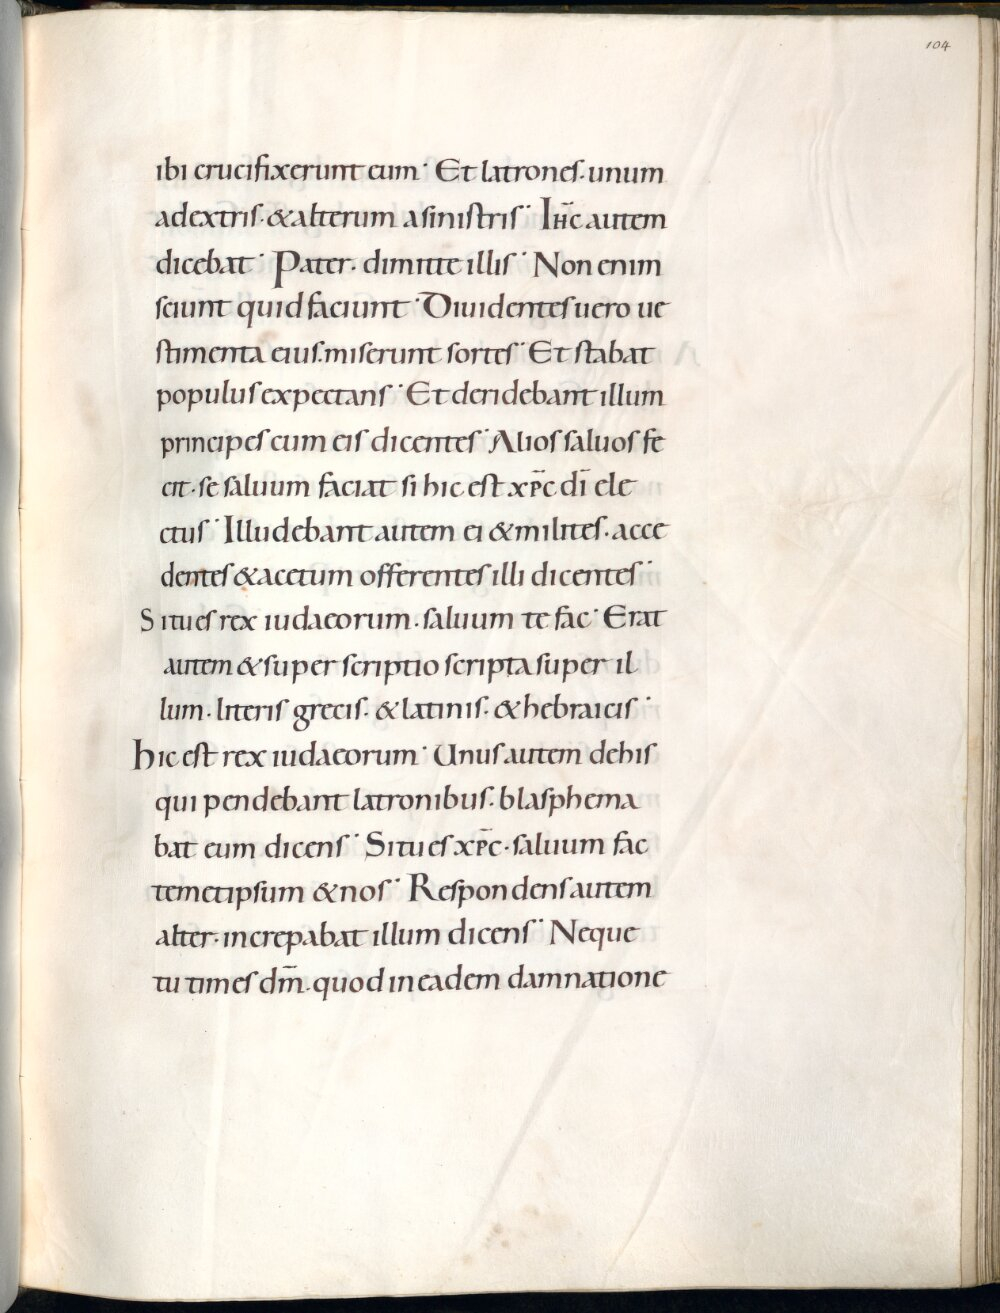 104
ibi crucifixerunt eum· Et latrones· unum
adextris· &alterum asinistris· Ihc̄ autem
dicebat· Pater· dimitte illis· Non enim
sciunt quid faciunt· Diuidentes uero ue
stimenta eius· miserunt sortes· Et stabat
populus expectans· Et deridebant illum
principes cum eis dicentes· Alios saluos fe
cit· se saluum faciat si hic est xp̄c dī ele
ctus· Illudebant autem ei &milites· acce
dentes &acetum offerentes illi dicentes·
Situ es rex iudaeorum· saluum te fac· Erat
autem &super scriptio scripta super il
lum· litteris grecis· &latinis· &hebraicis·
hic est rex iudaeorum· Unus autem dehis
qui pendebant latronibus· blasphema
bat eum dicens· Situ es xp̄c· saluum fac
temetipsum &nos· Respondens autem
alter· increpabat illum dicens· Neque
tu times dm̄· quod in eadem damnatione